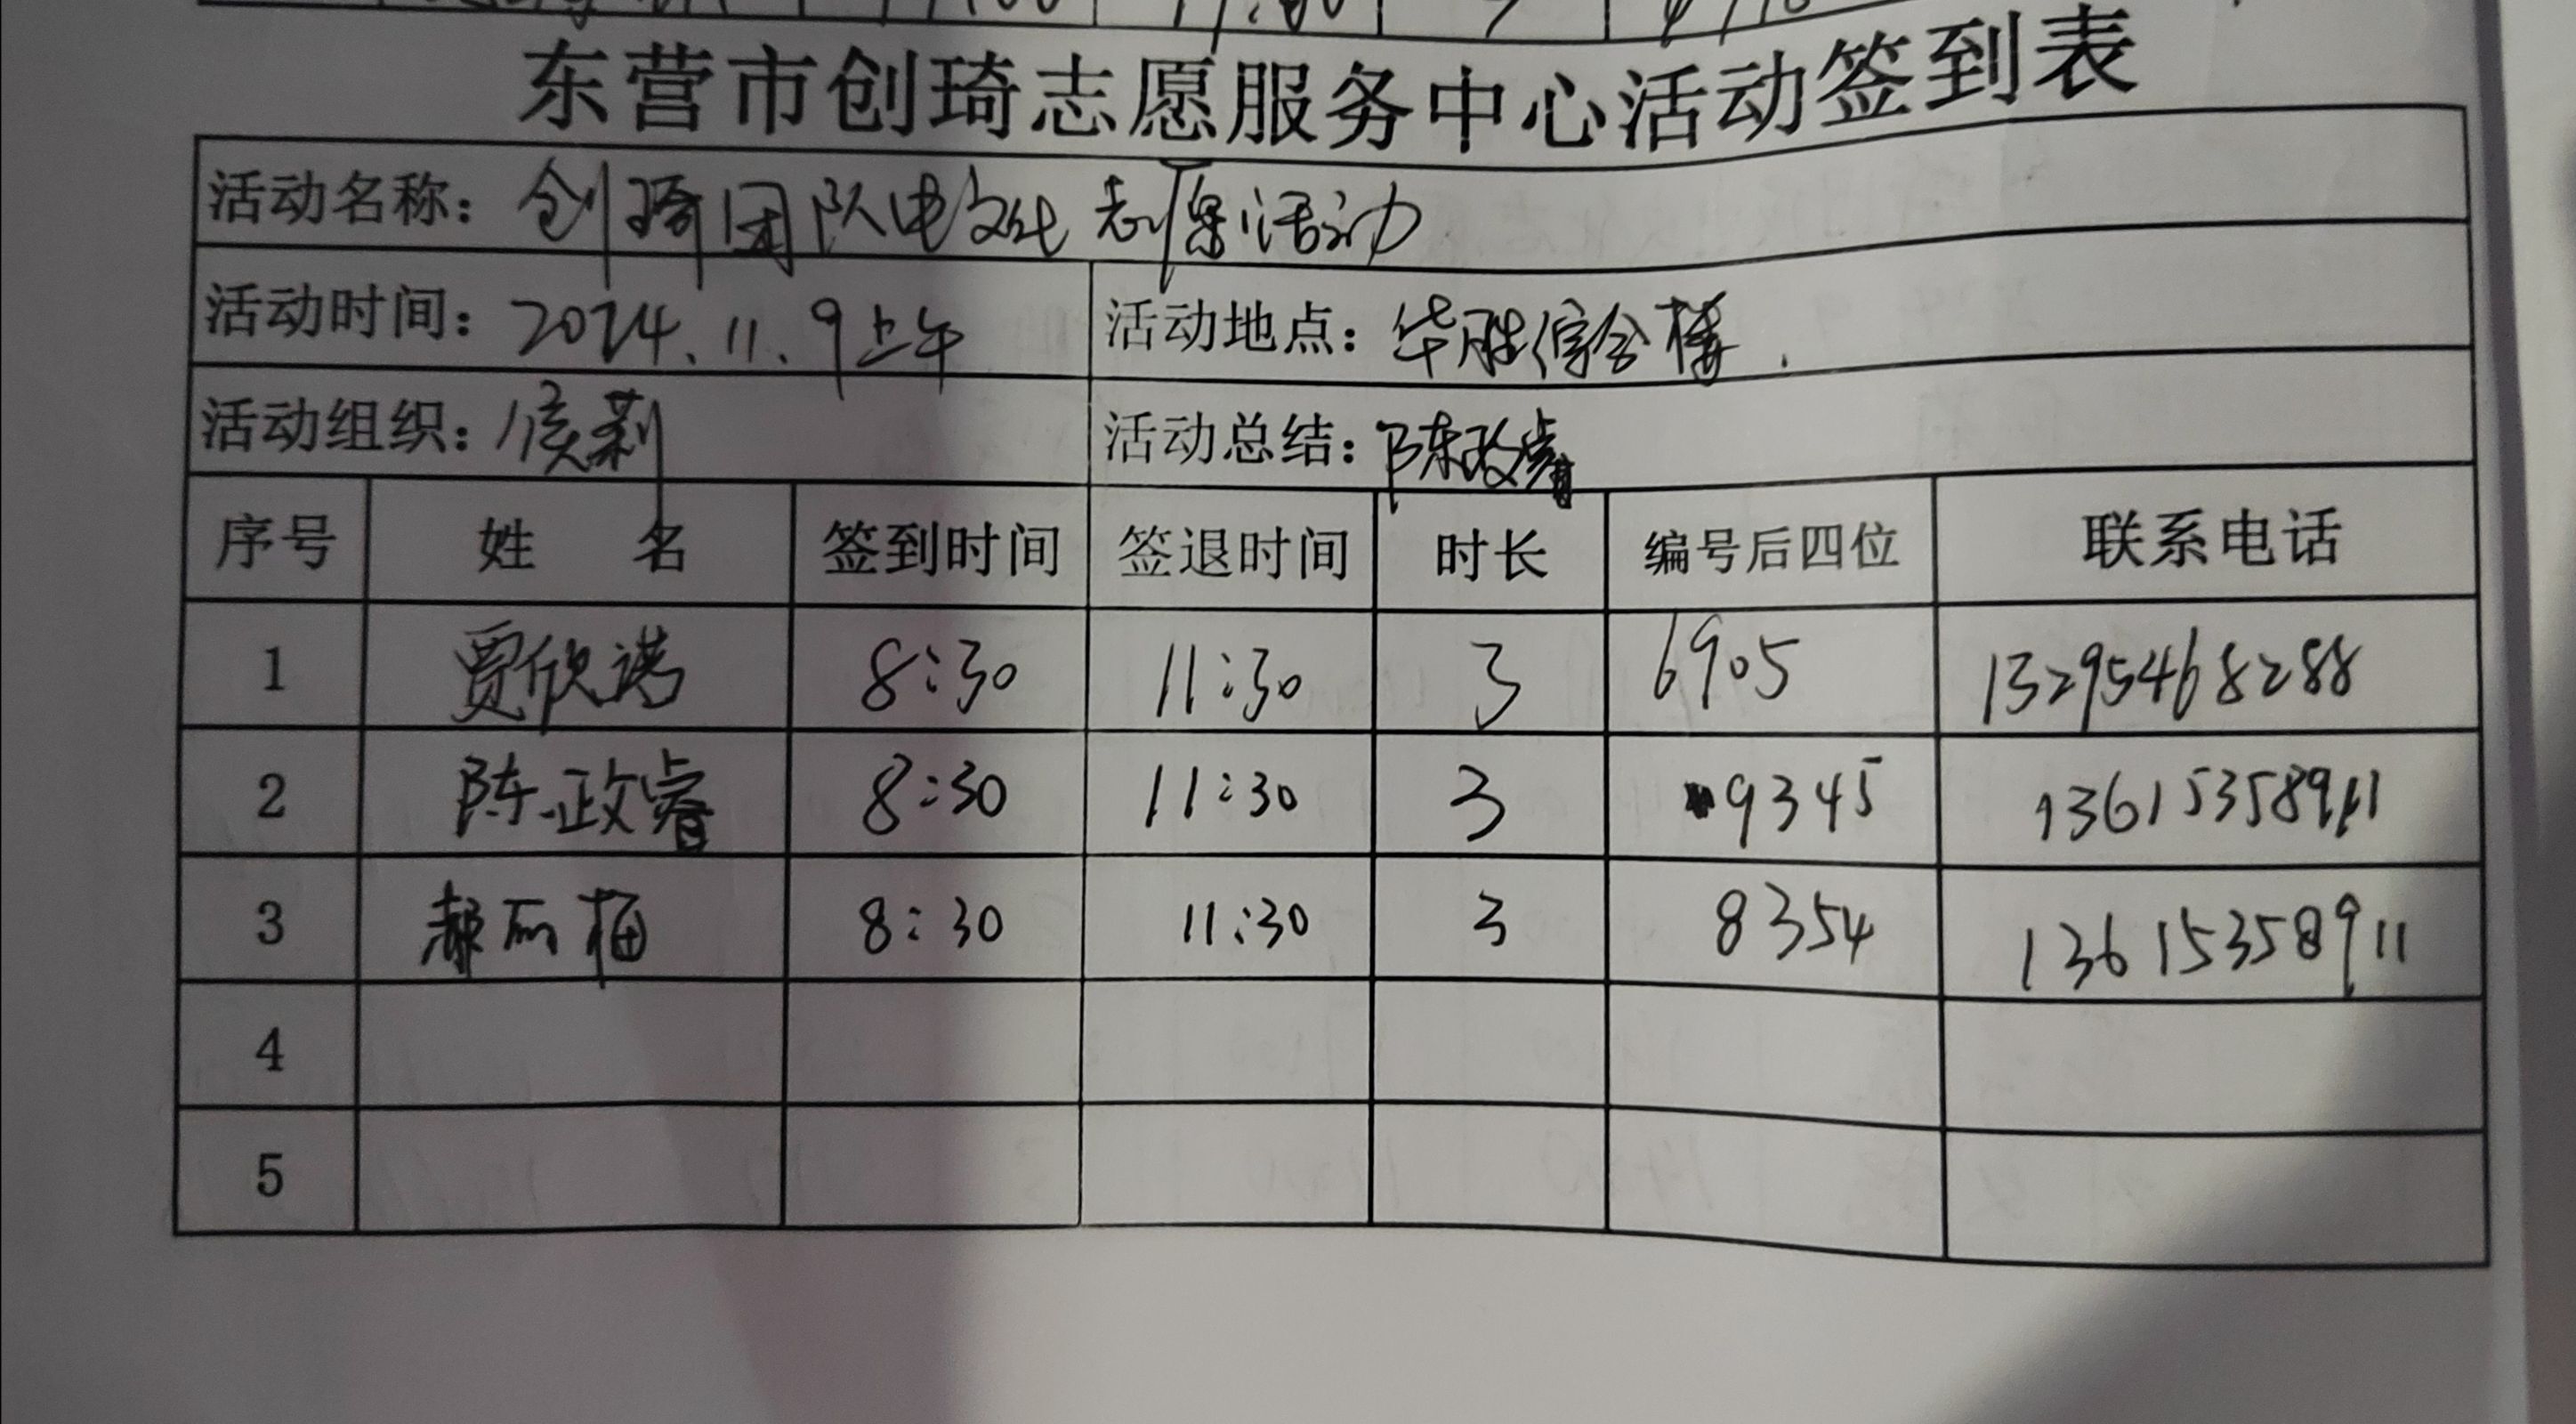 东营市创琦志愿服务中心活动签到表
活动名称：创琦团队电文化志愿活动
活动时间：2024.11.9上午 活动地点：华胜综合楼.
活动组织：侯莉 活动总结：陈政睿
序号 姓名 签到时间 签退时间 时长 编号后四位 联系电话
1 贾欣诺 8:30 11:30 3 6905 13295468288
2 陈政睿 8:30 11:30 3 9345 13615358911
3 郝丽梅 8:30 11:30 3 8354 13615358911
4
5